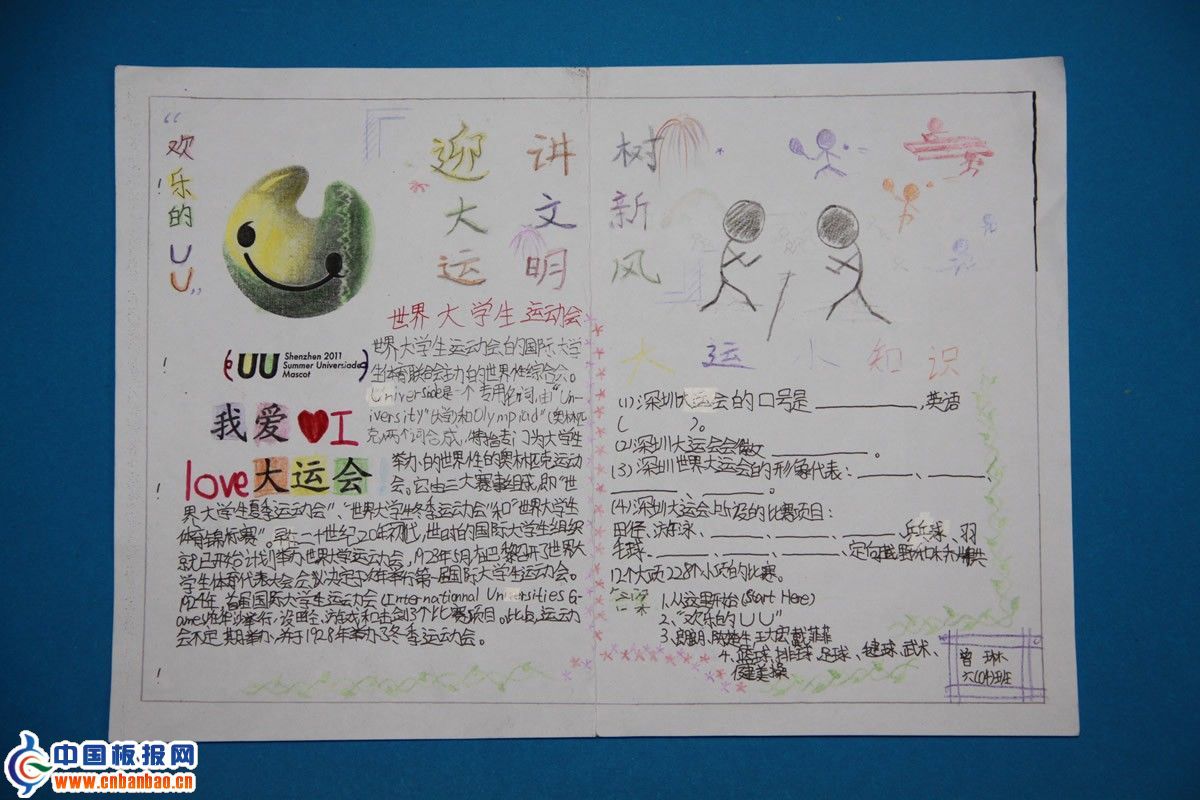 “欢乐的UU”
迎大运
讲文明
树新风
UU Shenzhen 2011
Summer Universiade
Mascot
我爱I
love大运会
世界大学生运动会
世界大学生运动会的国际大学
生体育联合会主办的世界性综合
Universiade是一个专用名词,由“Un-
iversity”(大学)和Olympiad”(奥林匹
克)两个词合成,特指专门为大学生
举办的世界性的奥林匹克运动
会。它由三大赛事组成,即“世
界大学生夏季运动会”、“世界大学生冬季运动会”和“世界大学生
体育锦标赛”。早在二十世纪20年代,世时的国际大学生组织
就已开始计划举办世界大学运动会,1923年5月在巴黎召开了世界大
学生体育代表大会会议决定次年举行第一届国际大学生运动会。
1924年,首届国际大学生运动会(International Universities G-
ames)在华沙举行,设田径、游泳和击剑3个比赛项目。此后,运动
会不定期举办,并于1928年举办了冬季运动会。
大运小知识
(1)深圳大运会的口号是________,英语
( )。
(2)深圳大运会会徽________。
(3)深圳世界大运会的形象代表:____、____、
____、____。
(4)深圳大运会上涉及的比赛项目:
田径、游泳、____、____、____、乒乓球、羽
毛球、____、____、____、定向越野和
12个大项228个小项的比赛。
答案
1.从这里开始(Start Here)
2.“欢乐的UU”
3.
4.篮球、排球、足球、毽球、武术、
健美操
曾琳
六(04)班
中国板报网
www.cnbanbao.cn